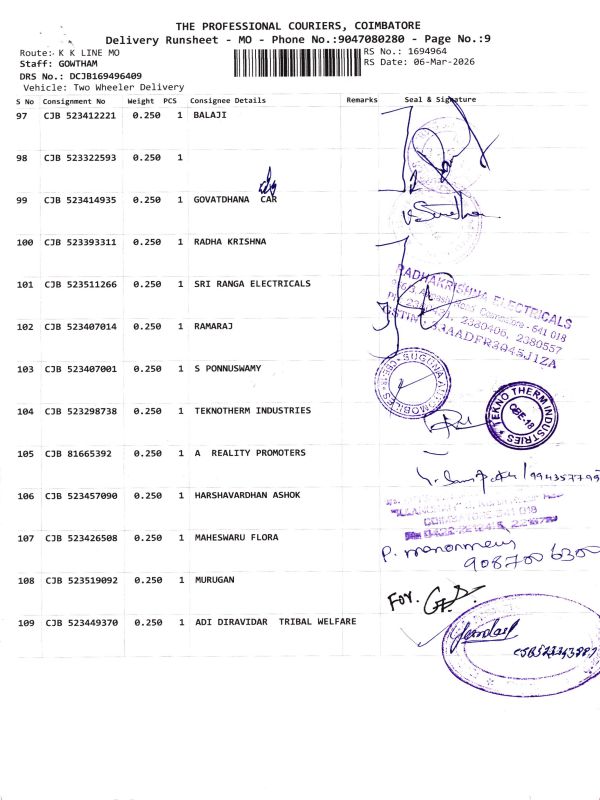 THE PROFESSIONAL COURIERS, COIMBATORE
Delivery Runsheet - MO - Phone No.:9047080280 - Page No.:9
Route: K K LINE MO
RS No.: 1694964
Staff: GOWTHAM
RS Date: 06-Mar-2026
DRS No.: DCJB169496409
Vehicle: Two Wheeler Delivery
S No Consignment No Weight PCS Consignee Details Remarks Seal & Signature
97 CJB 523412221 0.250 1 BALAJI
98 CJB 523322593 0.250 1
99 CJB 523414935 0.250 1 GOVATDHANA CAR
100 CJB 523393311 0.250 1 RADHA KRISHNA
101 CJB 523511266 0.250 1 SRI RANGA ELECTRICALS
RADHAKRISHNA ELECTRICALS
641 018
2380406, 2380557
102 CJB 523407014 0.250 1 RAMARAJ
103 CJB 523407001 0.250 1 S PONNUSWAMY
SUGUNA
104 CJB 523298738 0.250 1 TEKNOTHERM INDUSTRIES
TEKNO THERM INDUSTRIES
CBE-18
105 CJB 81665392 0.250 1 A REALITY PROMOTERS
106 CJB 523457090 0.250 1 HARSHAVARDHAN ASHOK
107 CJB 523426508 0.250 1 MAHESWARU FLORA
908700 6300
108 CJB 523519092 0.250 1 MURUGAN
For.
109 CJB 523449370 0.250 1 ADI DIRAVIDAR TRIBAL WELFARE